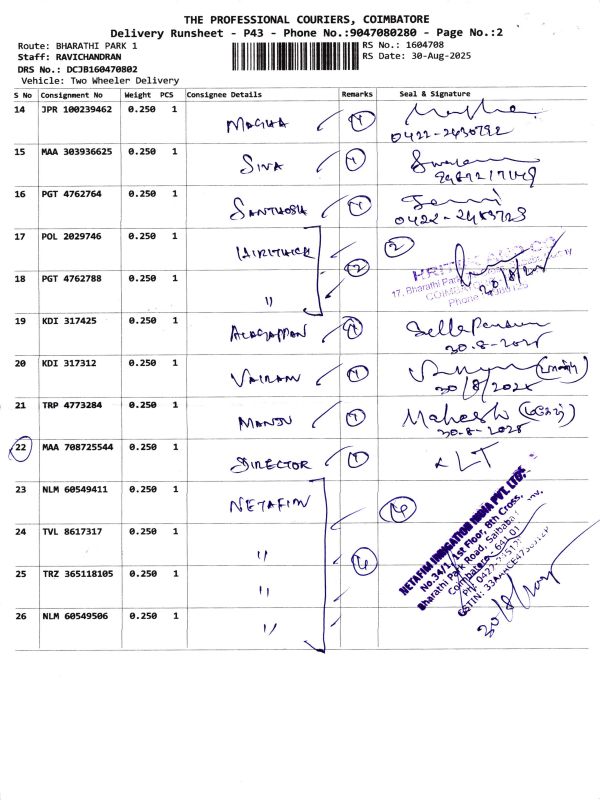 THE PROFESSIONAL COURIERS, COIMBATORE
Delivery Runsheet - P43 - Phone No.:9047080280 - Page No.:2
Route: BHARATHI PARK 1
RS No.: 1604708
Staff: RAVICHANDRAN
RS Date: 30-Aug-2025
DRS No.: DCJB160470802
Vehicle: Two Wheeler Delivery
S No Consignment No Weight PCS Consignee Details Remarks Seal & Signature
14 JPR 100239462 0.250 1 MAGHA 1
0422-2430792
15 MAA 303936625 0.250 1 SIVA 1
16 PGT 4762764 0.250 1 SANTHOSH 1
17 POL 2029746 0.250 1 2
18 PGT 4762788 0.250 1 " 2
17, Bharathi Park
Phone
19 KDI 317425 0.250 1 ALAGAPPAN 1
30-8-2025
20 KDI 317312 0.250 1 VAIRAM 1
30/8/2025
21 TRP 4773284 0.250 1 MANJU 1 Mahesh
30-8-2025
22 MAA 708725544 0.250 1 DIRECTOR 1 LT
23 NLM 60549411 0.250 1 NETAFIM 4
24 TVL 8617317 0.250 1 " 4
25 TRZ 365118105 0.250 1 "
26 NLM 60549506 0.250 1 "
NETAFIM IRRIGATION INDIA PVT. LTD.,
No.34/1, 1st Floor, 8th Cross,
Bharathi Park Road, Saibaba
Coimbatore - 641 01